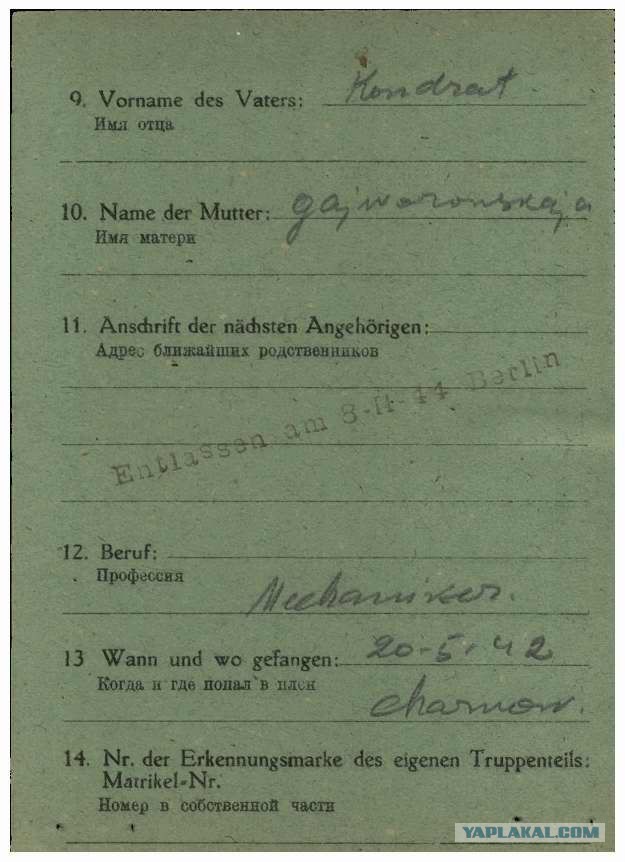 9. Vorname des Vaters: Kondrat
Имя отца
10. Name der Mutter: Gajworonskaja
Имя матери
11. Anschrift der nächsten Angehörigen:
Адрес ближайших родственников
Entlassen am 8-II-44 Berlin
12. Beruf:
Профессия
Mechaniker.
13 Wann und wo gefangen: 20-5.42
Когда и где попал в плен
14. Nr. der Erkennungsmarke des eigenen Truppenteils:
Matrikel-Nr.
Номер в собственной части
YAPLAKAL.COM